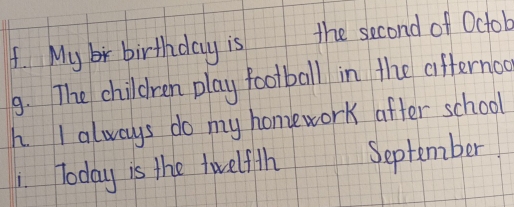 f. My birthday is the second of Octob
g. The children play football in the afternoo
h. I always do my homework after school
i. Today is the twelfth September.